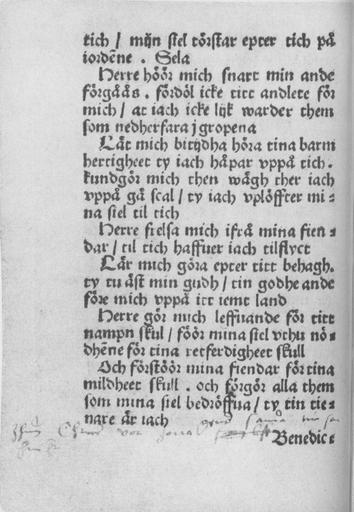 tich / mijn siel törstar epter tich på
iordēne . Sela
Herre höör mich snart min ande
förgåås . fördöl icke titt andlete för
mich / at iach icke lijk warder them
som nedherfara j gropena
Låt mich bitijdha höra tina barm
hertigheet ty iach håpar vppå tich .
kundgör mich then wägh ther iach
vppå gå scal / ty iach vplöffter mi⸗
na siel til tich
Herre frelsa mich ifrå mina fien⸗
dar / til tich haffuer iach tilflyct
Lär mich göra epter titt behagh.
ty tu äst min gudh / tin godhe ande
före mich vppå itt iemt land
Herre gör mich leffuande för titt
nampn skul / föör mina siel vthu nö⸗
dhēne för tina retferdigheet skull
Och förstöör mina fiendar för tina
mildheet skull . och förgör alla them
som mina siel bedröffua / ty tin tie⸗
nare är iach
Benedic⸗